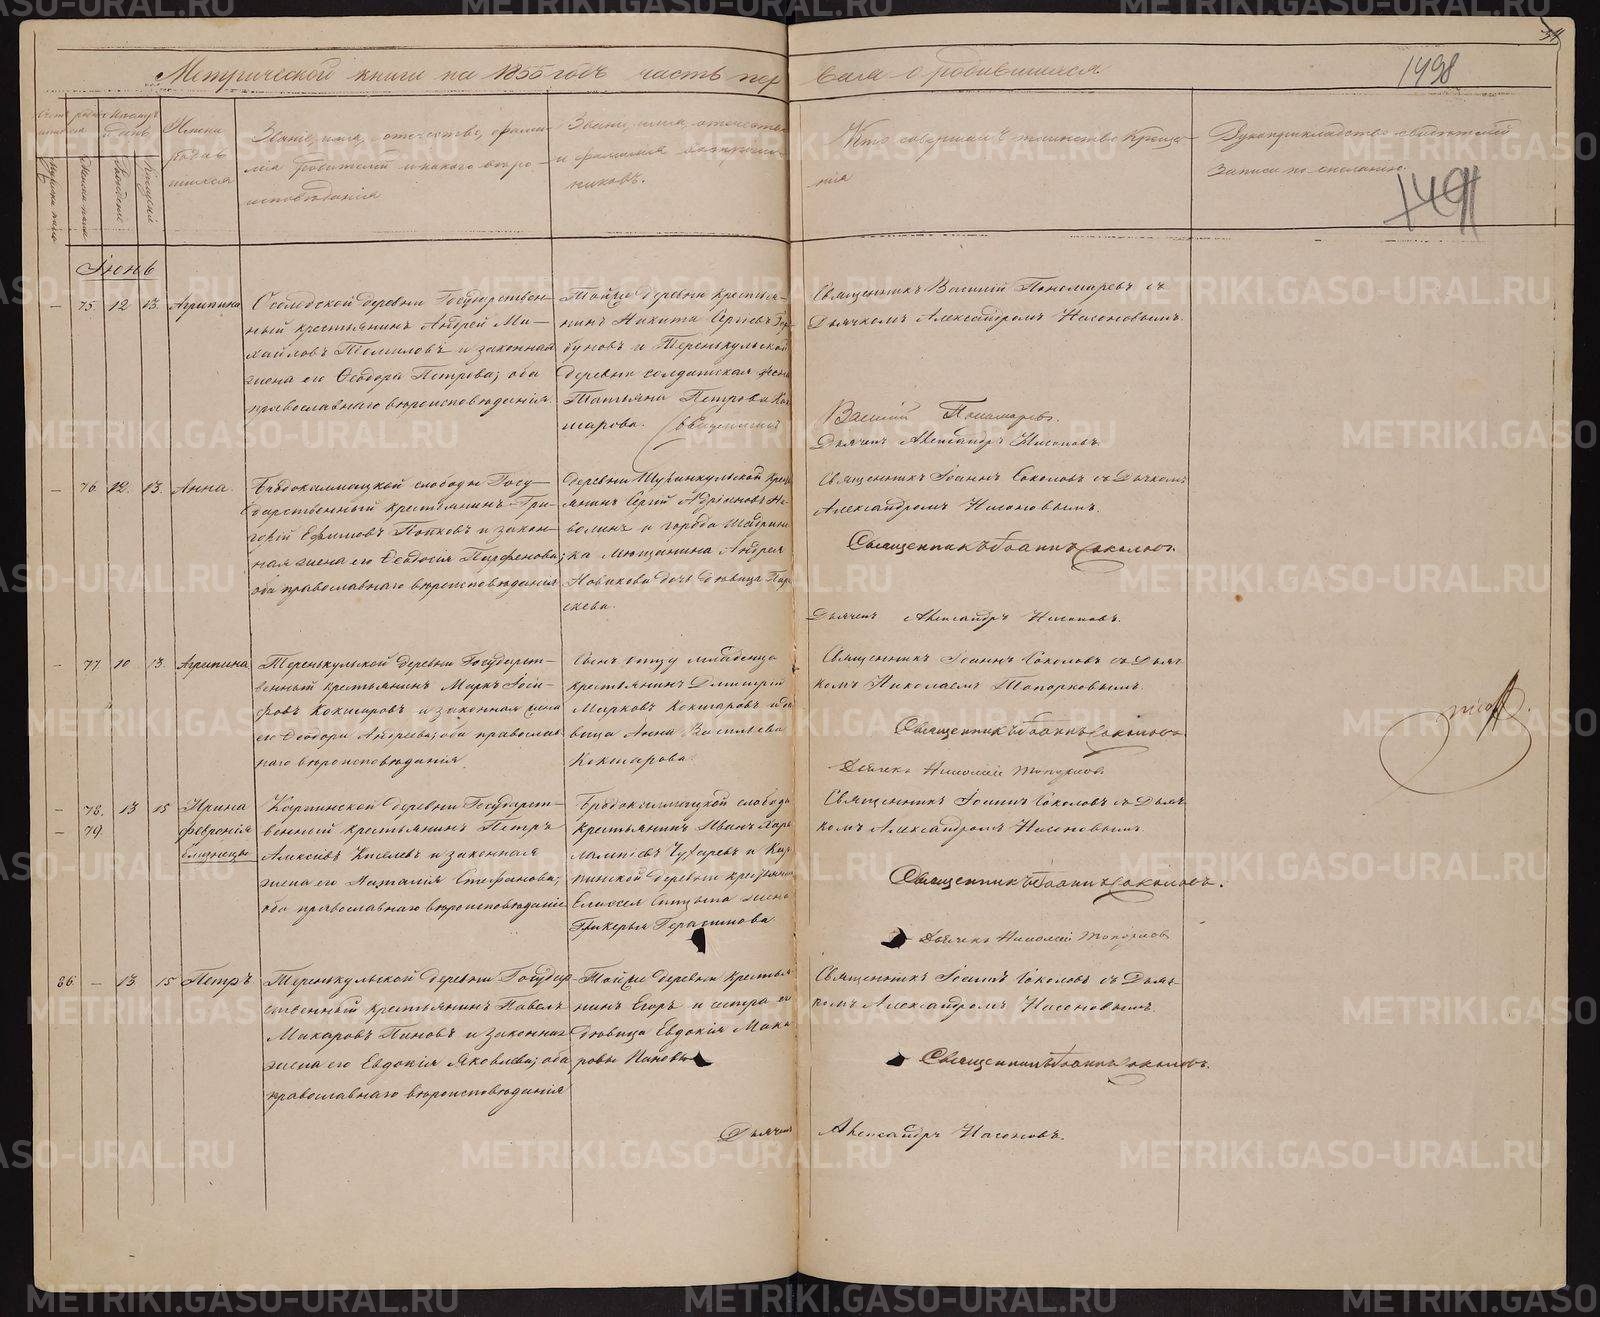 Метрической книги на 1855 годъ часть первая о родившихся
1498
Имена родившихся
Званіе, имя, отечество, фамилія родителей и какого вѣроисповѣданія
Званіе, имя, отечество и фамилія воспріемниковъ.
Кто совершалъ таинство крещенія
Рукоприкладство свидѣтелей записи по желанію.
Іюнь
75. 12 13. Агрипина
деревни Государствен-
ный крестьянинъ Андрей Ми-
хайловъ Томиловъ и законная
жена его Ѳеодора Петрова; оба
православнаго вѣроисповѣданія.
Той же деревни крестья-
нинъ Никита Сергѣевъ Гор-
буновъ и Теренкульской
деревни солдатская жена
Татьяна Петрова Кок-
шарова.
Священникъ Василій Пономаревъ съ
Дьячкомъ Александромъ Насоновымъ.
Василій Пономаревъ.
Дьячекъ Александръ Насоновъ.
76. 12. 13. Анна.
Бродокалмацкой слободы Госу-
дарственный крестьянинъ Гри-
горій Ефимовъ Попковъ и закон-
ная жена его Ѳеодосія Парфенова;
оба православнаго вѣроисповѣданія
деревни Шугункульской крест
янинъ Сергій Адріяновъ Не-
волинъ и города Шадрин
ка Мѣщанина Андрея
Новикова дочь дѣвица Пар
скева.
Священникъ Іоаннъ Соколовъ съ Дьячкомъ
Александромъ Насоновымъ.
Священникъ Іоаннъ Соколовъ.
Дьячекъ Александръ Насоновъ.
77 10 13. Агрипина
Теренкульской деревни Государст-
венный крестьянинъ Маркъ Іоси-
фовъ Кокшаровъ и законная жена
его Ѳеодора Андреева; оба православ
наго вѣроисповѣданія
Сынъ отцу младенца
крестьянинъ Димитрій
Марковъ Кокшаровъ и дѣ
вица Анна Васильева
Кокшарова.
Священникъ Іоаннъ Соколовъ съ Дьяч
комъ Николаемъ Топорковымъ.
Священникъ Іоаннъ Соколовъ
Дьячекъ Николай Топорковъ
78. 13 15 Ирина
79. Февронія
близнецы
Карпинской деревни Государст-
венный крестьянинъ Петръ
Алексѣевъ Киселевъ и законная
жена его Наталія Стефанова;
оба православнаго вѣроисповѣданія
Бродокалмацкой слободы
крестьянинъ Иванъ Хар
лампіевъ Чухаревъ и Кар
пинской деревни крестьянина
Елисея Спицына жена
Гликерья Герасимова
Священникъ Іоаннъ Соколовъ съ Дьяч
комъ Александромъ Насоновымъ.
Священникъ Іоаннъ Соколовъ.
Дьячекъ Николай Топорковъ
86 — 13 15 Петръ
Теренкульской деревни Государ
ственный крестьянинъ Павелъ
Макаровъ Пановъ и законная
жена его Евдокія Яковлева; оба
православнаго вѣроисповѣданія
Той же деревни крестья
нинъ Егоръ и сестра его
дѣвица Евдокія Мака
ровы Пановы
Священникъ Іоаннъ Соколовъ съ Дьяч
комъ Александромъ Насоновымъ.
Священникъ Іоаннъ Соколовъ.
Дьячекъ Александръ Насоновъ.
METRIKI.GASO-URAL.RU